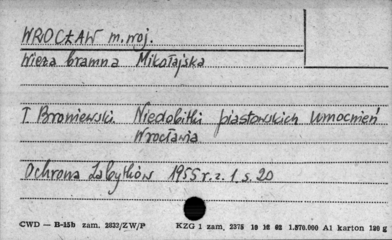 WROCŁAW m. woj.
Wieża bramna Mikołajska
T. Broniewski. Niedobitki piastowskich umocnień
Wrocławia
Ochrona Zabytków 1955 r. z. 1. s. 20
CWD — B-15b zam. 2832/ZW/P KZG 1 zam. 2375 19 10 62 1.570.000 A1 karton 180 g